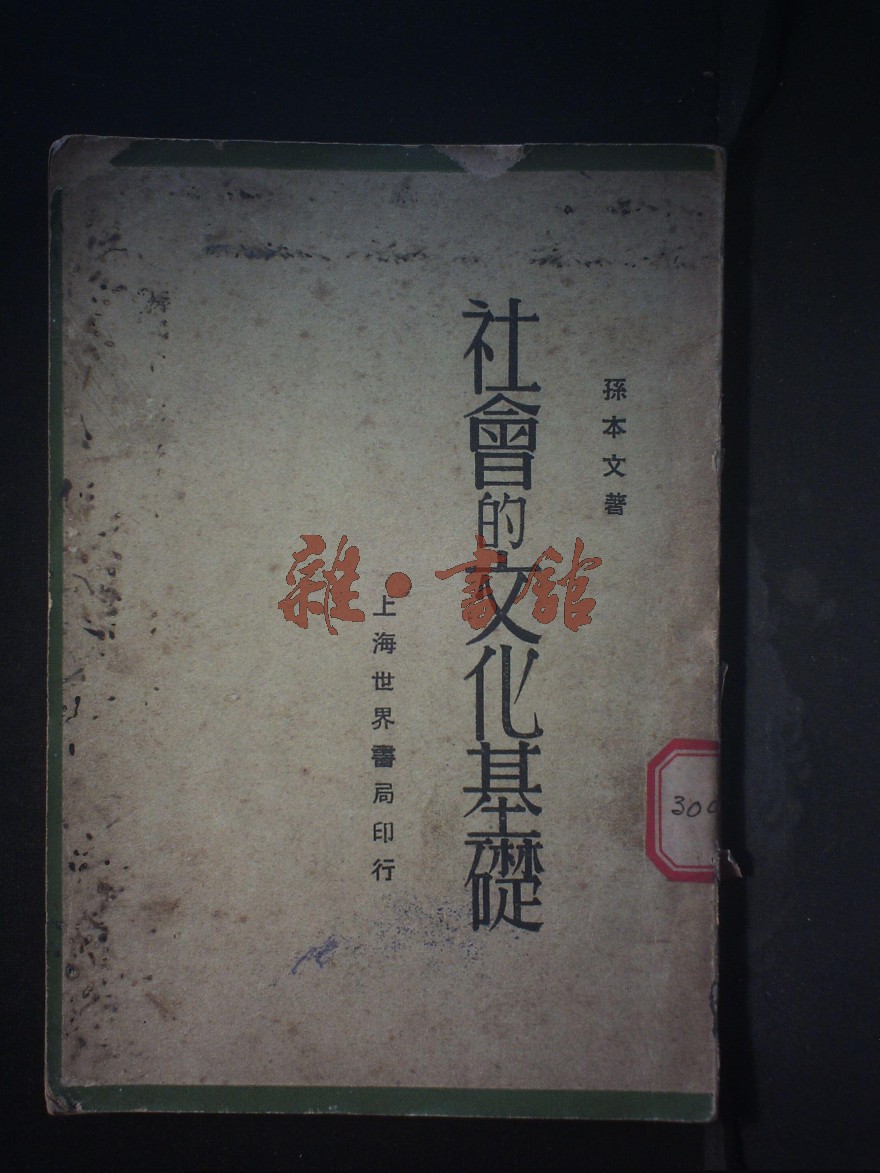 孫本文著
社會的文化基礎
上海世界書局印行
雜·書館
300